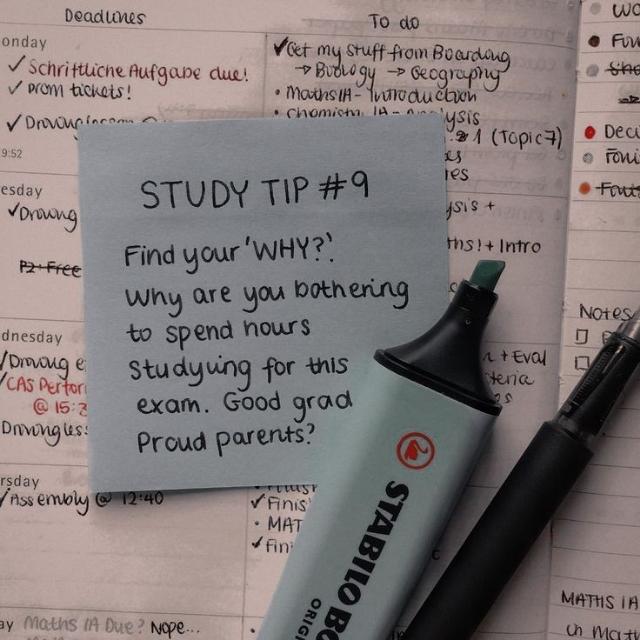 Deadlines
To do
onday
✓ Schriftliche Aufgabe due!
✓ prom tickets!
✓ Drawing
9:52
esday
✓ Drawng
P2 + Free
dnesday
✓ Drawng e
✓ CAS Perfor
@ 15:
Drawng les
rsday
✓ Assembly @ 12:40
ay
Maths IA Due? Nope...
✓ Get my stuff from Boarding
→ Biology → Geography
• Maths IA - Introduction
• Chemistry IA - Analysis
1 (Topic 7)
es
ies
ysis +
ths! + Intro
+ Eval
teria
✓ Finis
• MAT
✓ Fin
STUDY TIP #9
Find your 'WHY?'.
Why are you bothering
to spend hours
studying for this
exam. Good grad
Proud parents?
STABILO BO
ORIGI
Wo
Fun
Decc
Notes
MATHS IA